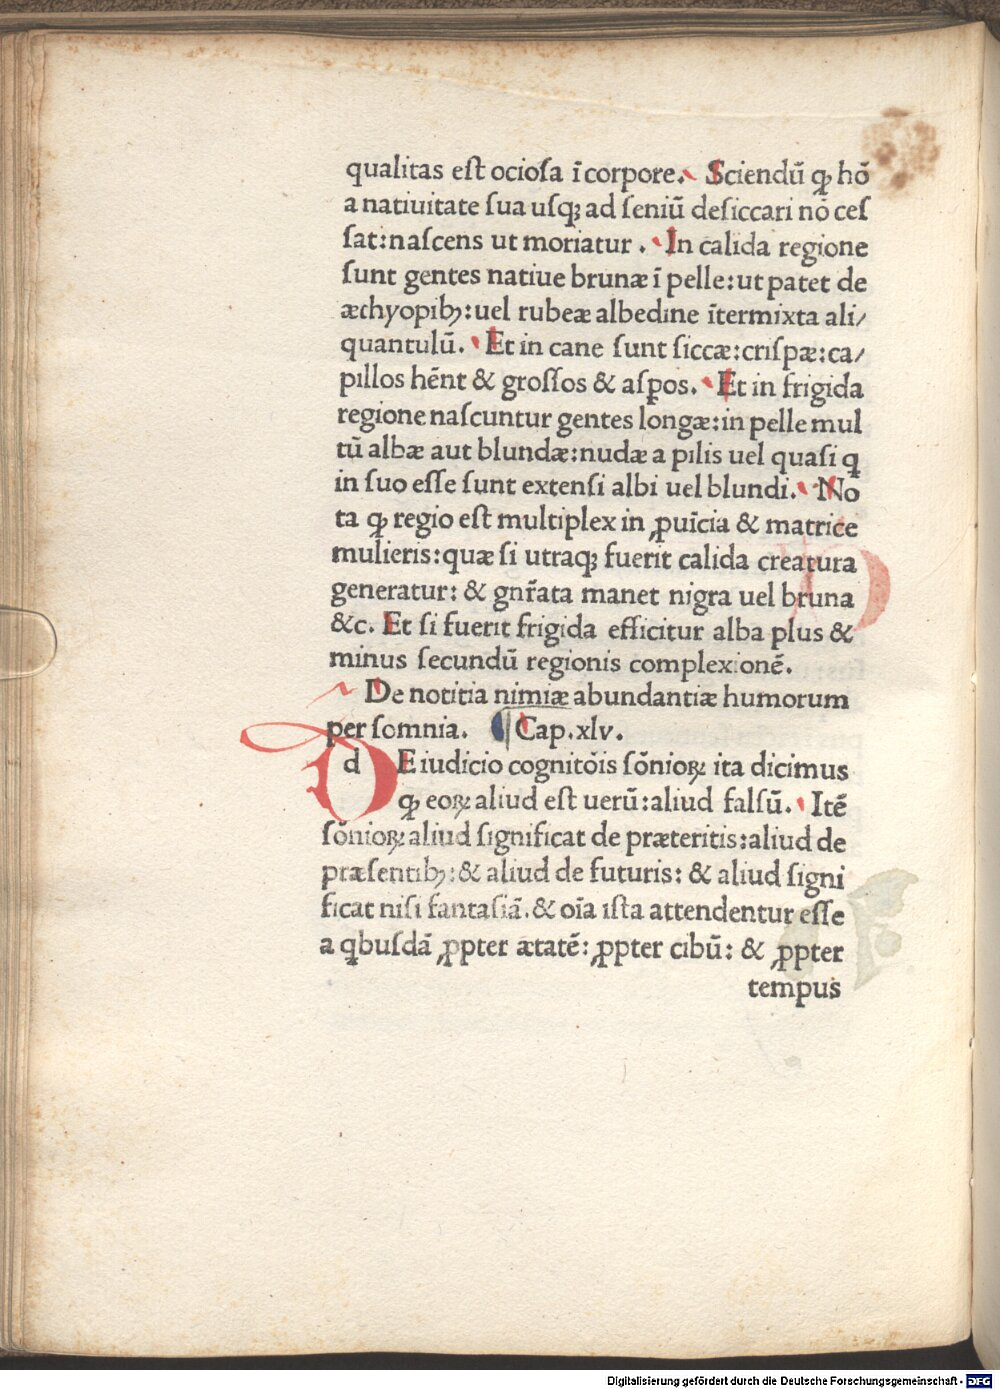 qualitas eſt ocioſa ī corpore. Sciendū ꝙ hō
a natiuitate ſua uſqꝫ ad ſeniū deſiccari nō ceſ
ſat: naſcens ut moriatur . In calida regione
ſunt gentes natiue brunæ ī pelle: ut patet de
æthyopibꝫ: uel rubeæ albedine ītermixta ali/
quantulū. Et in cane ſunt ſiccæ: criſpæ: ca/
pillos hēnt & groſſos & aſꝑos. Et in frigida
regione naſcuntur gentes longæ: in pelle mul
tū albæ aut blundæ: nudæ a pilis uel quaſi ꝗ
in ſuo eſſe ſunt extenſi albi uel blundi. No
ta ꝙ regio eſt multiplex in ꝓuīcia & matrice
mulieris: quæ ſi utraqꝫ fuerit calida creatura
generatur: & gnr̄ata manet nigra uel bruna
&c. Et ſi fuerit frigida efficitur alba plus &
minus ſecundū regionis complexionē.
De notitia nimiæ abundantiæ humorum
per ſomnia. ¶ Cap. xlv.
d E iudicio cognitōis ſōnioꝝ ita dicimus
ꝙ eoꝝ aliud eſt uerū: aliud falſū. Itē
ſōnioꝝ aliud ſignificat de præteritis: aliud de
præſentibꝫ: & aliud de futuris: & aliud ſigni
ficat niſi fantaſiā. & oīa iſta attendentur eſſe
a ꝗbuſdā ꝓpter ætatē: ꝓpter cibū: & ꝓpter
tempus
Digitalisierung gefördert durch die Deutsche Forschungsgemeinschaft - DFG